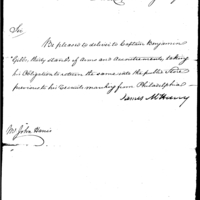 Sir,
Be pleased to deliver to Captain Benjamin
Gibbs thirty stands of Arms and Accoutrements, taking
his Obligation to return the same into the public Store
previous to his Command marching from Philadelphia
James McHenry
Mr John Harris